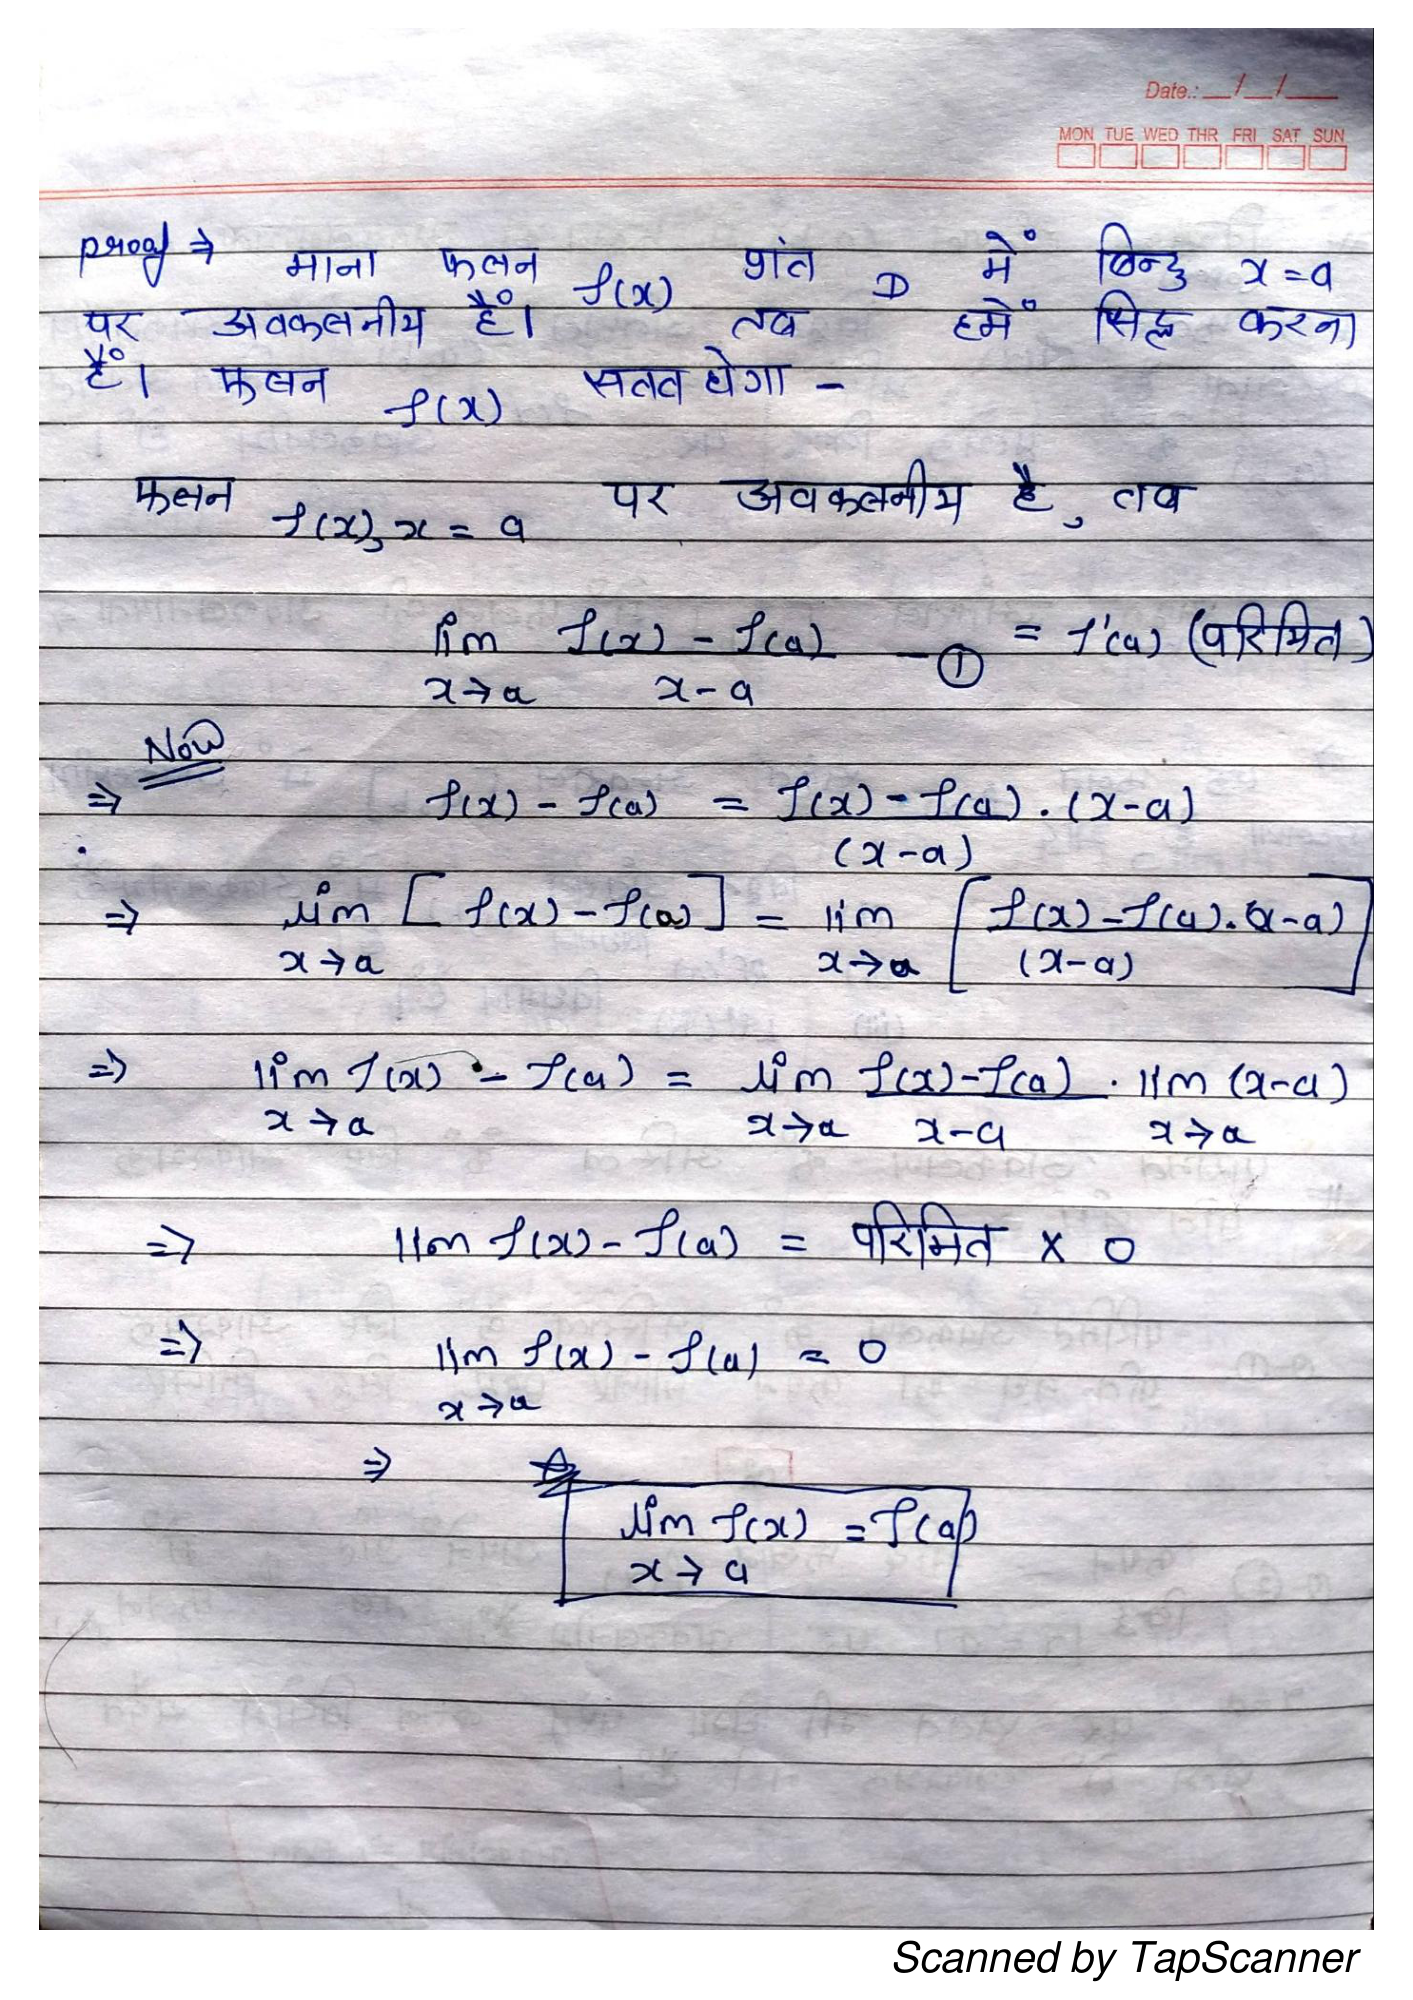 Date.: __/__/__
MON TUE WED THR FRI SAT SUN
Proof ⇒ माना फलन f(x) प्रांत D में बिन्दु x = a
पर अवकलनीय हैं। तब हमें सिद्ध करना
हैं। फलन f(x) सतत होगा -
फलन f(x), x = a पर अवकलनीय है, तब
lim f(x) - f(a) - ① = f'(a) (परिमित)
x→a x-a
Now
⇒ f(x) - f(a) = f(x) - f(a) . (x-a)
(x-a)
⇒ lim [ f(x) - f(a) ] = lim [ f(x) - f(a) . (x-a) ]
x→a x→a (x-a)
⇒ lim f(x) - f(a) = lim f(x) - f(a) . lim (x-a)
x→a x→a x-a x→a
⇒ lim f(x) - f(a) = परिमित × 0
⇒ lim f(x) - f(a) = 0
x→a
⇒ lim f(x) = f(a)
x→a
Scanned by TapScanner